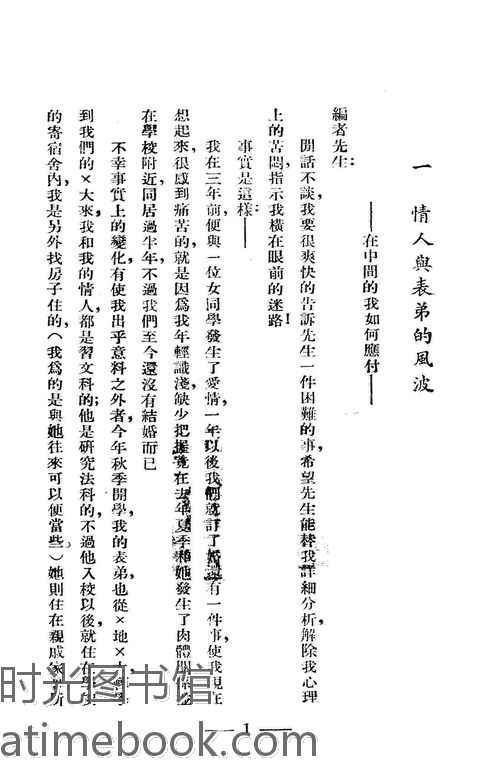 一　情人與表弟的風波
——在中間的我如何應付——
編者先生：
閒話不談，我要很爽快的告訴先生一件困難的事，希望先生能替我詳細分析，解除我心理
上的苦悶，指示我橫在眼前的迷路！
事實是這樣——
我在三年前，便與一位女同學發生了愛情，一年以後我們就訂了婚，還有一件事，使我現在
想起來，很感到痛苦的，就是因爲我年輕識淺，缺少把握，竟在去年夏季和她發生了肉體關係，
在學校附近，同居過半年，不過我們至今還沒有結婚而已
不幸事實上的變化，有使我出乎意料之外者，今年秋季開學，我的表弟也從×地×
到我們的×大來，我和我的情人，都是習文科的；他是研究法科的，不過他入校以後，就住在
的寄宿舍內，我是另外找房子住的，（我爲的是與她往來可以便當些）她則住在親戚家
— 1 —
时光图书馆
atimebook.com